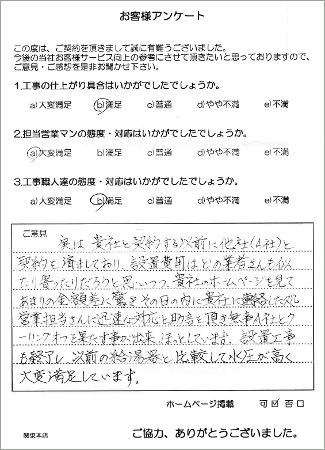 お客様アンケート
この度は、ご契約を頂きまして誠に有難うございました。
今後の当社お客様サービス向上の参考にさせて頂きたいと思っておりますので、
ご意見・ご感想を是非お聞かせ下さい。
1.工事の仕上がり具合はいかがでしたでしょうか。
a)大変満足 b)満足 c)普通 d)やや不満 e)不満
2.担当営業マンの態度・対応はいかがでしたでしょうか。
a)大変満足 b)満足 c)普通 d)やや不満 e)不満
3.工事職人達の態度・対応はいかがでしたでしょうか。
a)大変満足 b)満足 c)普通 d)やや不満 e)不満
ご意見
実は貴社と契約する以前に他社(A社)と
契約を済ましており、設置費用はどの業者さんも似
たり寄ったりだろうと思いつつ、貴社のホームページを見て
あまりの金額差に驚きその日の内に貴社に連絡した処
営業担当さんに迅速な対応と助言を頂き無事A社とク
ーリングオフを果たす事が出来ほっとしています。設置工事
も終了し、以前の給湯器と比較して水圧が高く
大変満足しています。
ホームページ掲載 可☑否□
関東本店
ご協力、ありがとうございました。